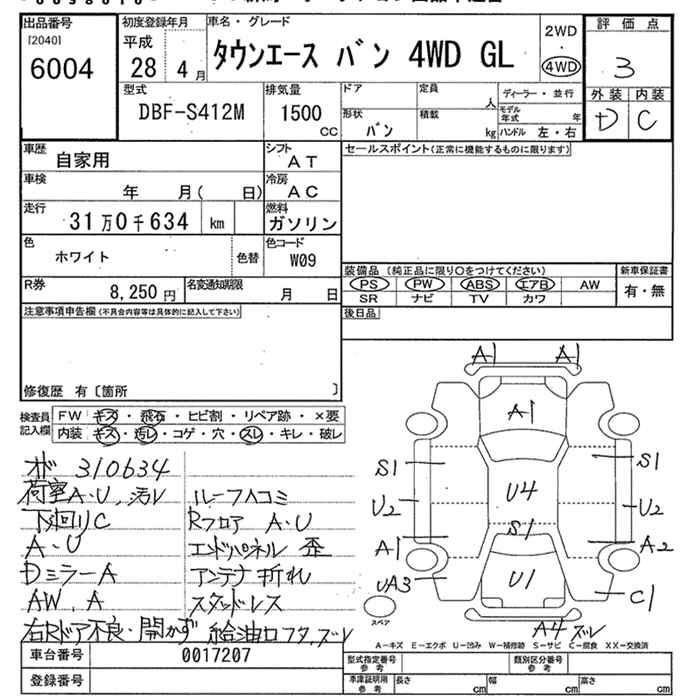 出品番号
[2040]
6004
初度登録年月
平成
28年 4月
車名・グレード
タウンエース バン 4WD GL
2WD
・
4WD
評価点
3
外装 内装
D C
型式
DBF-S412M
排気量
1500
cc
ドア
定員
人
形状
バン
積載
kg
ディーラー・並行
モデル年式 年
ハンドル 左・右
車歴
自家用
シフト
AT
車検
年 月( 日)
冷房
AC
走行
31万0千634 km
燃料
ガソリン
色
ホワイト
色替
色コード
W09
R券
8,250円
名変通知期限
月 日
セールスポイント(正常に機能するものに限ります)
装備品 (純正品に限り○をつけてください)
新車保証書
PS PW ABS エアB AW
有・無
SR ナビ TV カワ
後日品
注意事項申告欄(不具合内容等は具体的に記入して下さい)
修復歴 有〔箇所 〕
検査員記入欄
FW キズ・飛石・ヒビ割・リペア跡・×要
内装 キズ・汚レ・コゲ・穴・スレ・キレ・破レ
オド 310634
荷室A・U、汚レ
ルーフ凹コミ
下回りC
Rフロア A・U
A・U
エンドパネル 歪
Dミラー A
アンテナ 折れ
AW、A
スタッドレス
右Rドア不良・開かず
給油口フタ、ズレ
A1 A1
A1
S1 S1
U2 U4 U2
S1
A1 A2
UA3 U1 C1
スペア
A4 ズレ
A－キズ E－エクボ U－凹み W－補修跡 S－サビ C－腐食 XX－交換済
車台番号
0017207
登録番号
型式指定番号
参考
類別区分番号
参考
車庫証明用
参考
長さ cm 幅 cm 高さ cm